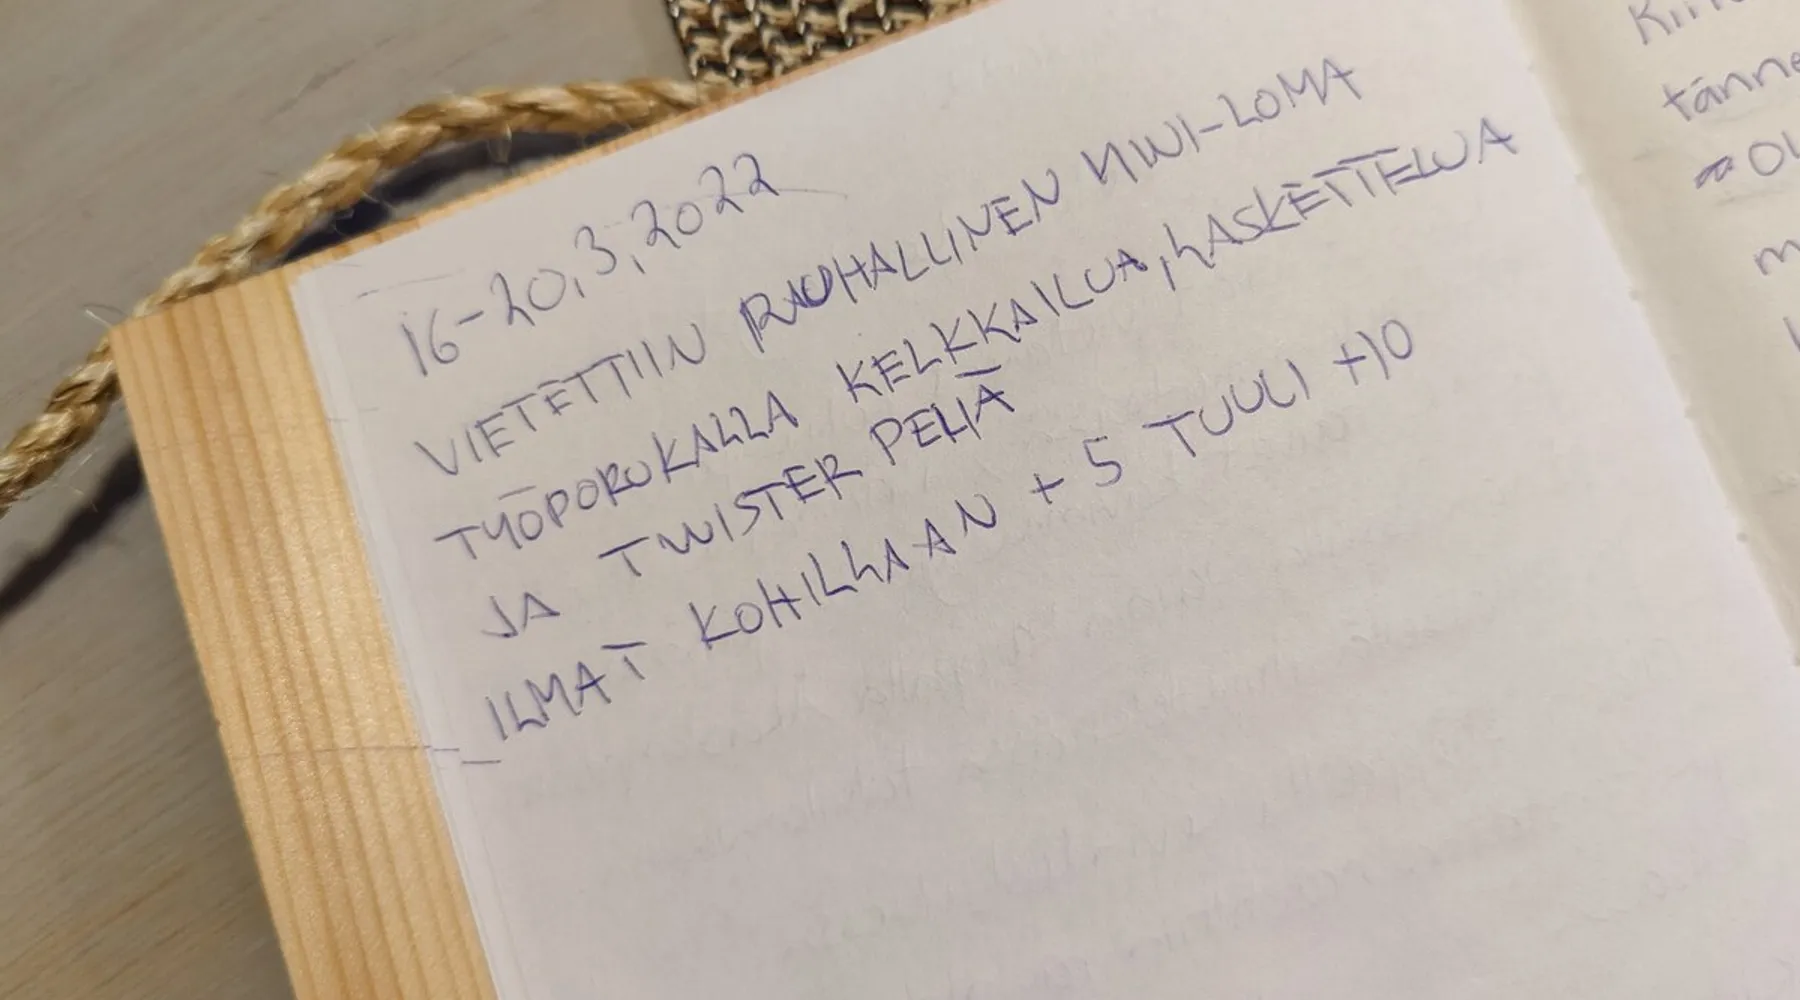 16-20,3,2022
VIETETTIIN RAUHALLINEN MINI-LOMA
TYÖPORUKALLA KELKKAILUA, LASKETTELUA
JA TWISTER PELIÄ
ILMAT KOHILLAAN +5 TUULI +10
tänne